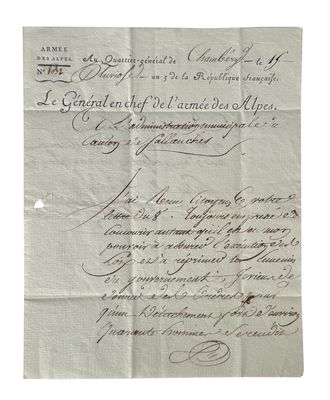 ARMÉE
DES ALPES.
N.° 1032
Au Quartier-général de Chambéry le 15
Pluviose an 5 de la République Française.
Le Général en chef de l'armée des Alpes.
A L'administration municipale du
Canton de Sallanches
J'ai Reçu Citoyens votre
lettre du 8. Toujours empressé de
concourir autant qu'il est en mon
pouvoir à assurer l'exécution des
Lois et à réprimer les ennemis
du gouvernement, je viens de
donner des ordres pour
qu'un Détachement fort d'environ
quarante hommes se rende